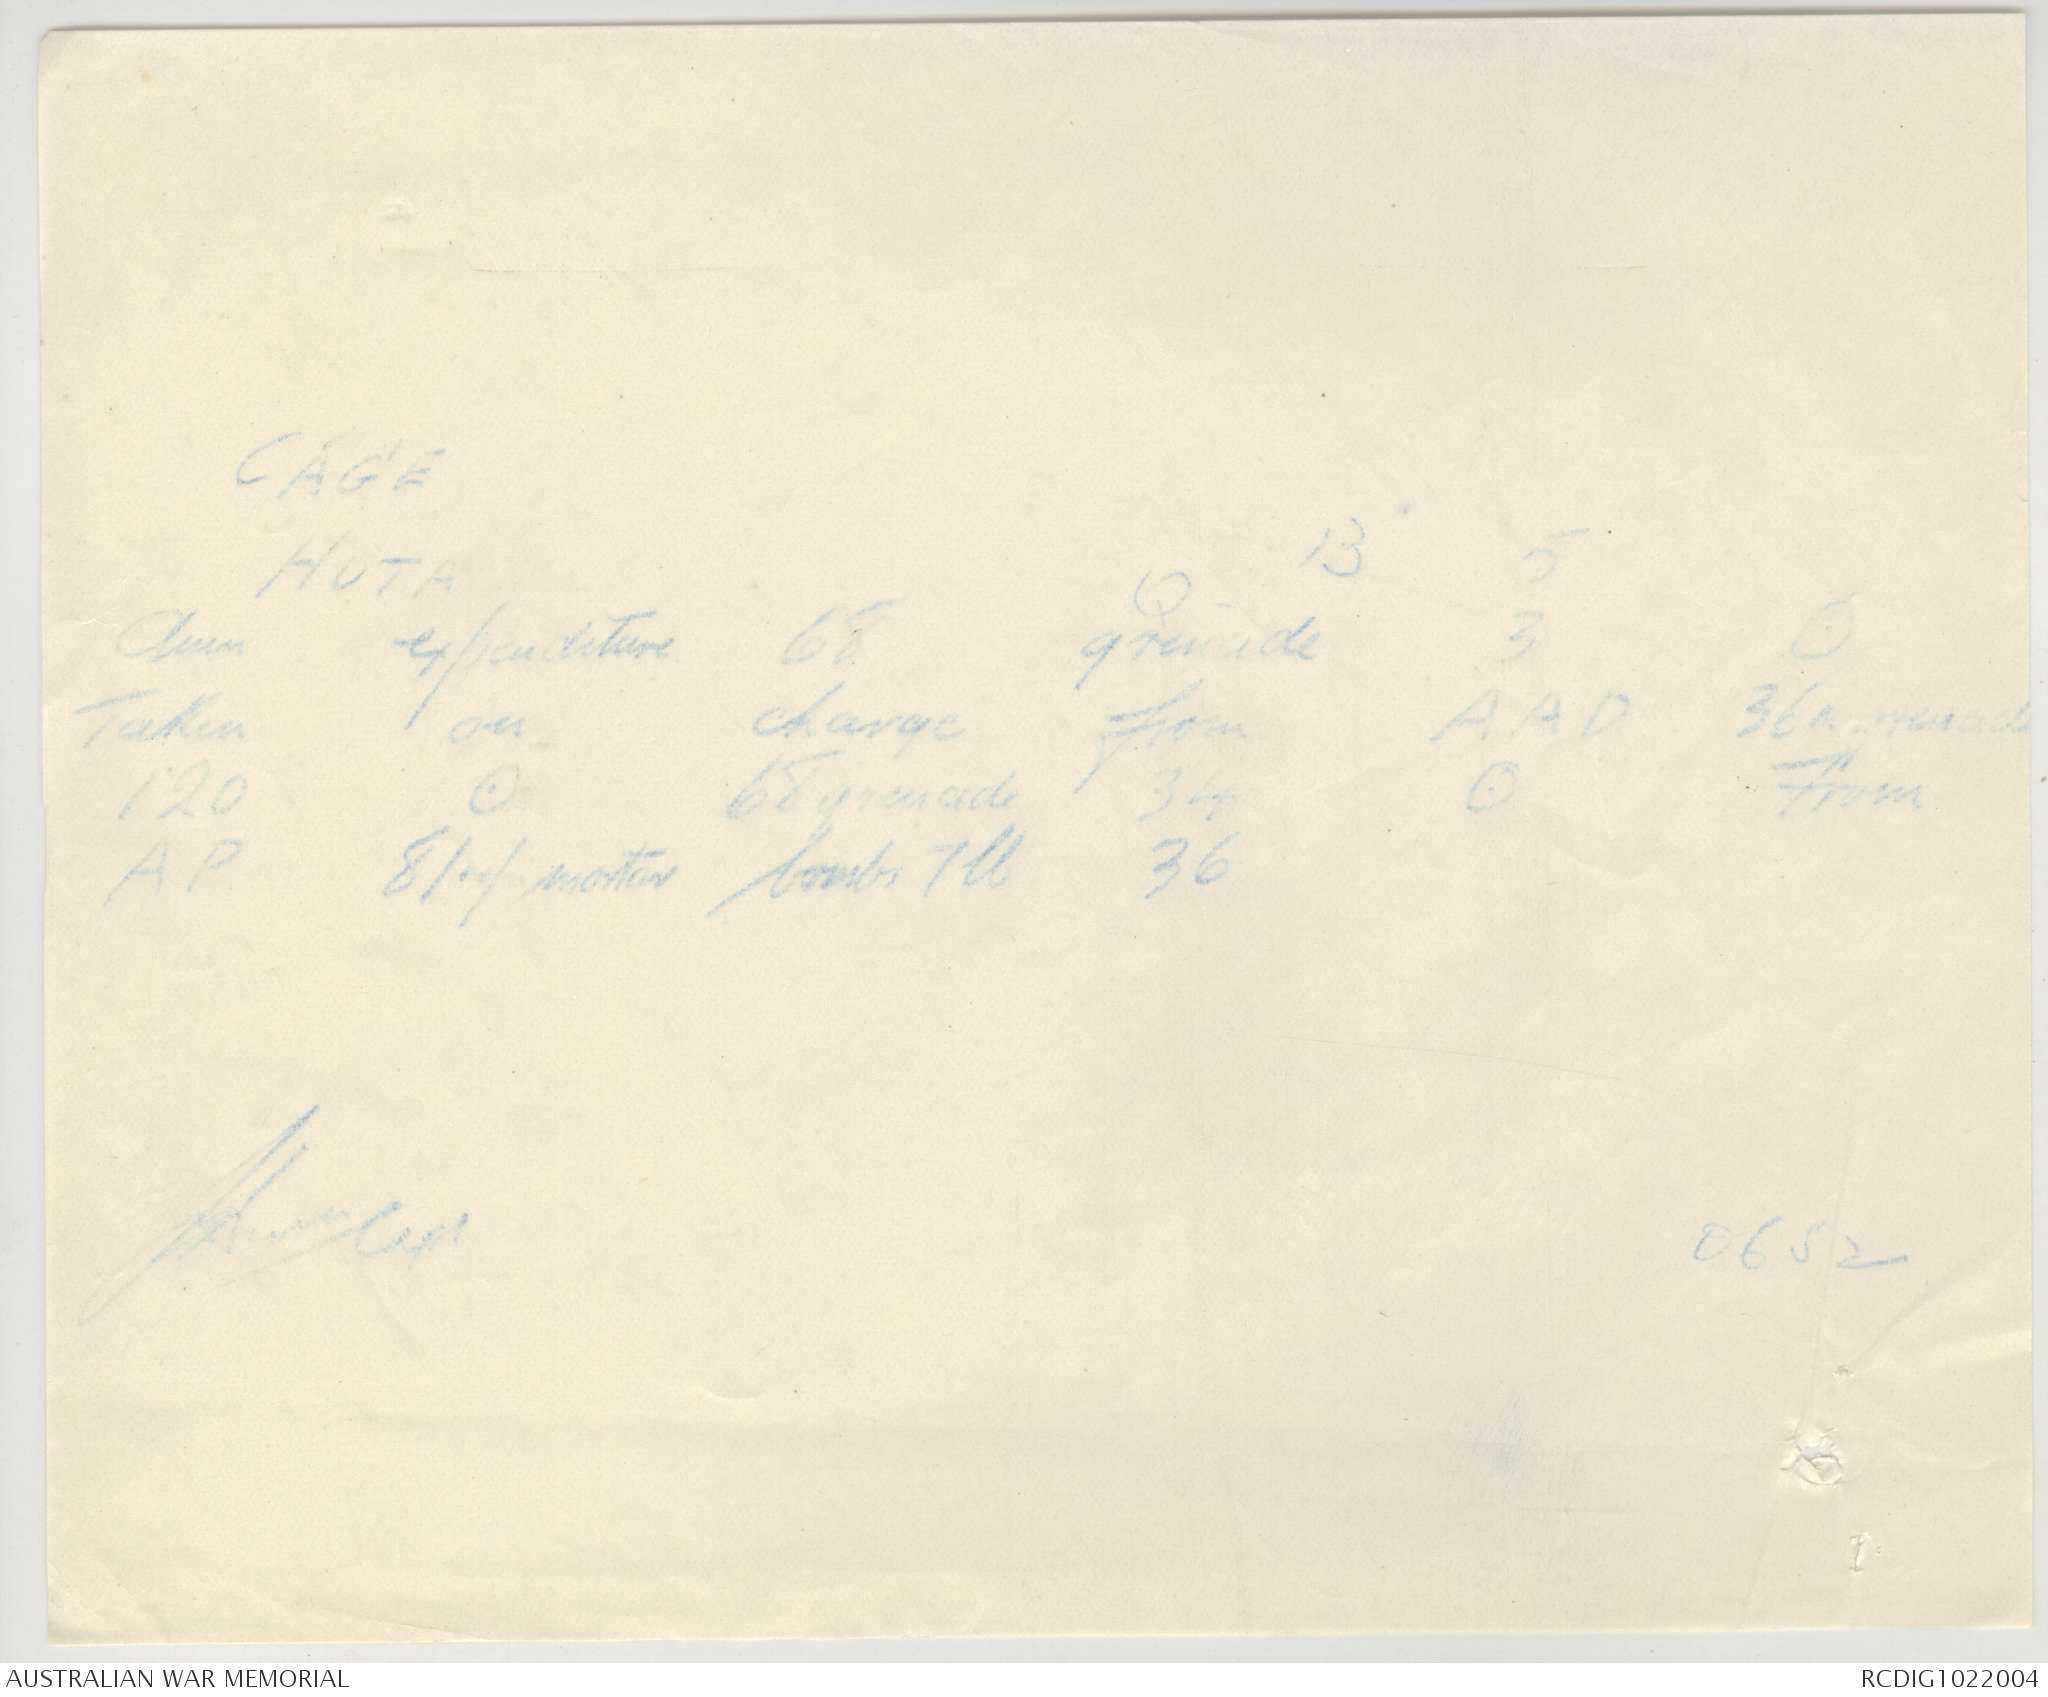 CAGE
HUTA
13 5
Q
Amm expenditure 68 grenade 3 ⊙
Taken on charge from AAD 36M grenade
120 ⊙ 68 grenade 34 ⊙ from
AP 81 mortar bombs 36
Capt 0652
AUSTRALIAN WAR MEMORIAL RCDIG1022004